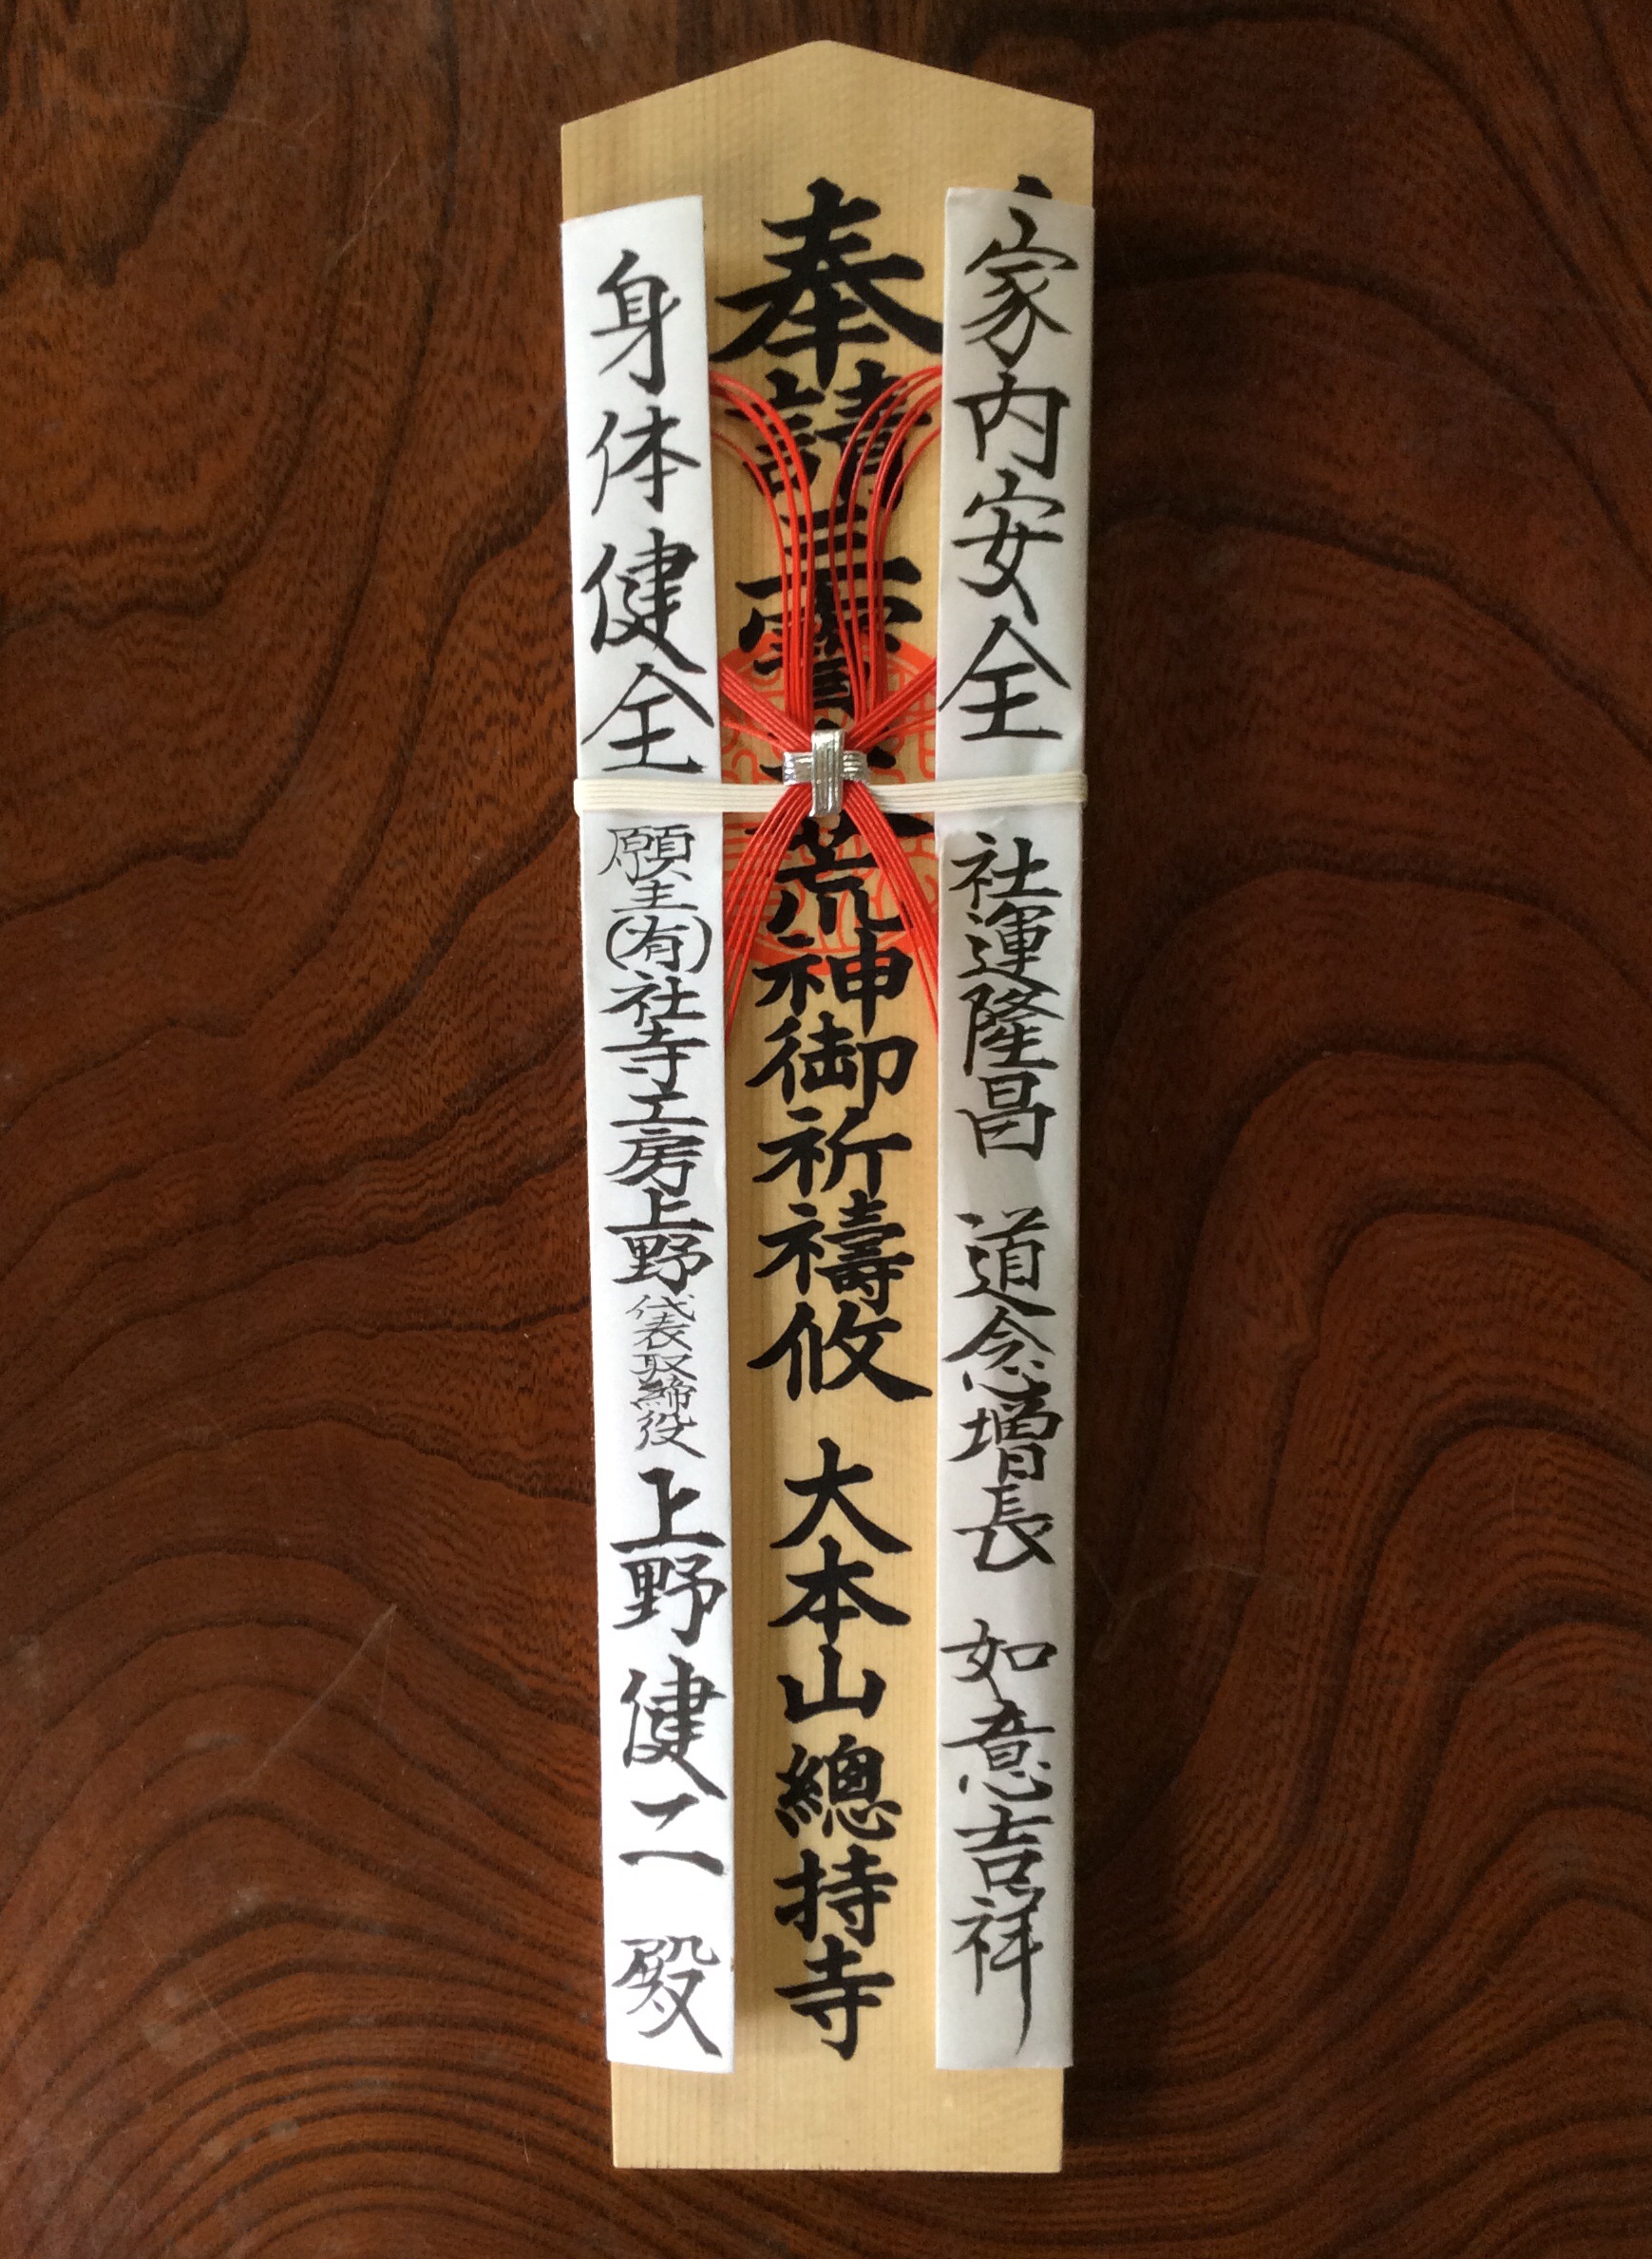 家内安全 社運隆昌 道念増長 如意吉祥
奉請三寶大荒神御祈禱攸 大本山總持寺
身体健全 願主(有)社寺工房上野 代表取締役 上野健二 殿